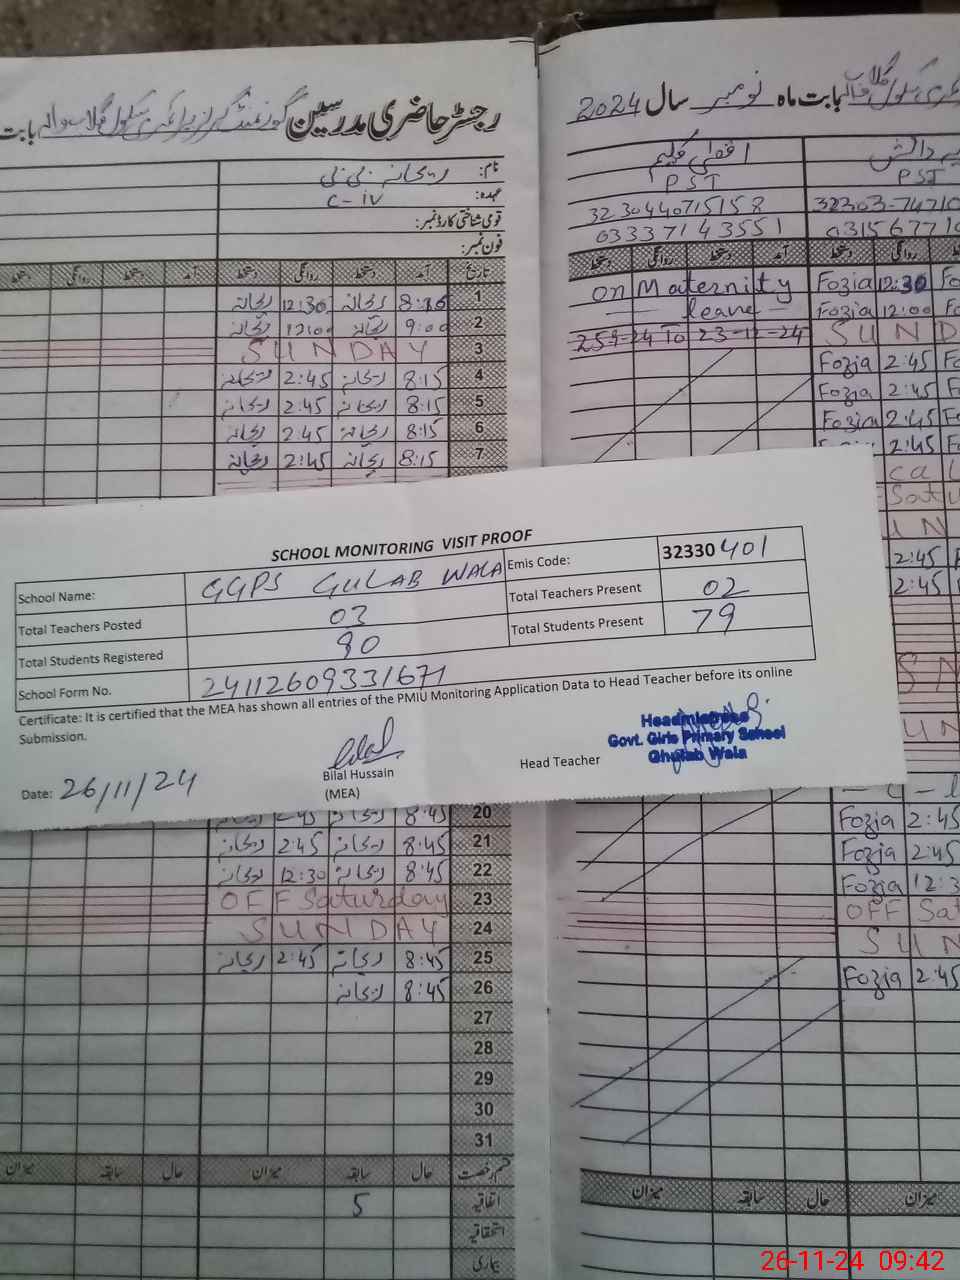 رجسٹر حاضری مدرسین گورنمنٹ گرلز پرائمری سکول گلاب والہ بابت
بابت ماہ نومبر سال 2024
نام: ریحانہ بی بی
عہدہ: C-iv
قومی شناختی کارڈ نمبر:
فون نمبر:
تاریخ آمد دستخط روانگی دستخط آمد دستخط روانگی دستخط
1 8:30 ریحانہ 12:30 ریحانہ
2 9:00 ریحانہ 12:00 ریحانہ
3 SUNDAY
4 8:15 ریحانہ 2:45 ریحانہ
5 8:15 ریحانہ 2:45 ریحانہ
6 8:15 ریحانہ 2:45 ریحانہ
7 8:15 ریحانہ 2:45 ریحانہ
PST PST
3230440715158 32303-74710
03337143551 031567710
روانگی دستخط آمد روانگی دستخط
on Maternity Fozia 12:30 Fo
leave Fozia 12:00 Fo
25-9-24 To 23-12-24 SUND
Fozia 2:45 Fo
Fozia 2:45 Fo
Fozia 2:45 Fo
2:45 Fo
2:45
2:45
SCHOOL MONITORING VISIT PROOF
School Name: GGPS GULAB WALA Emis Code: 32330401
Total Teachers Posted 03 Total Teachers Present 02
Total Students Registered 90 Total Students Present 79
School Form No. 24112609331671
Certificate: It is certified that the MEA has shown all entries of the PMIU Monitoring Application Data to Head Teacher before its online
Submission.
Date: 26/11/24
Bilal
Bilal Hussain
(MEA)
Head Teacher
Headmistress
Govt. Girls Primary School
Ghulab Wala
20 8:45 ریحانہ 2:45 ریحانہ
21 8:45 ریحانہ 2:45 ریحانہ
22 8:45 ریحانہ 12:30 ریحانہ
23 OFF Saturday
24 SUNDAY
25 8:45 ریحانہ 2:45 ریحانہ
26 8:45 ریحانہ
27
28
29
30
31
Fozia 2:45
Fozia 2:45
Fozia 12:3
OFF Sat
SUN
Fozia 2:45
قسم رخصت حال سابقہ میزان حال سابقہ میزان
اتفاقیہ 5
استحقاقیہ
بیماری
میزان حال سابقہ میزان
26-11-24 09:42